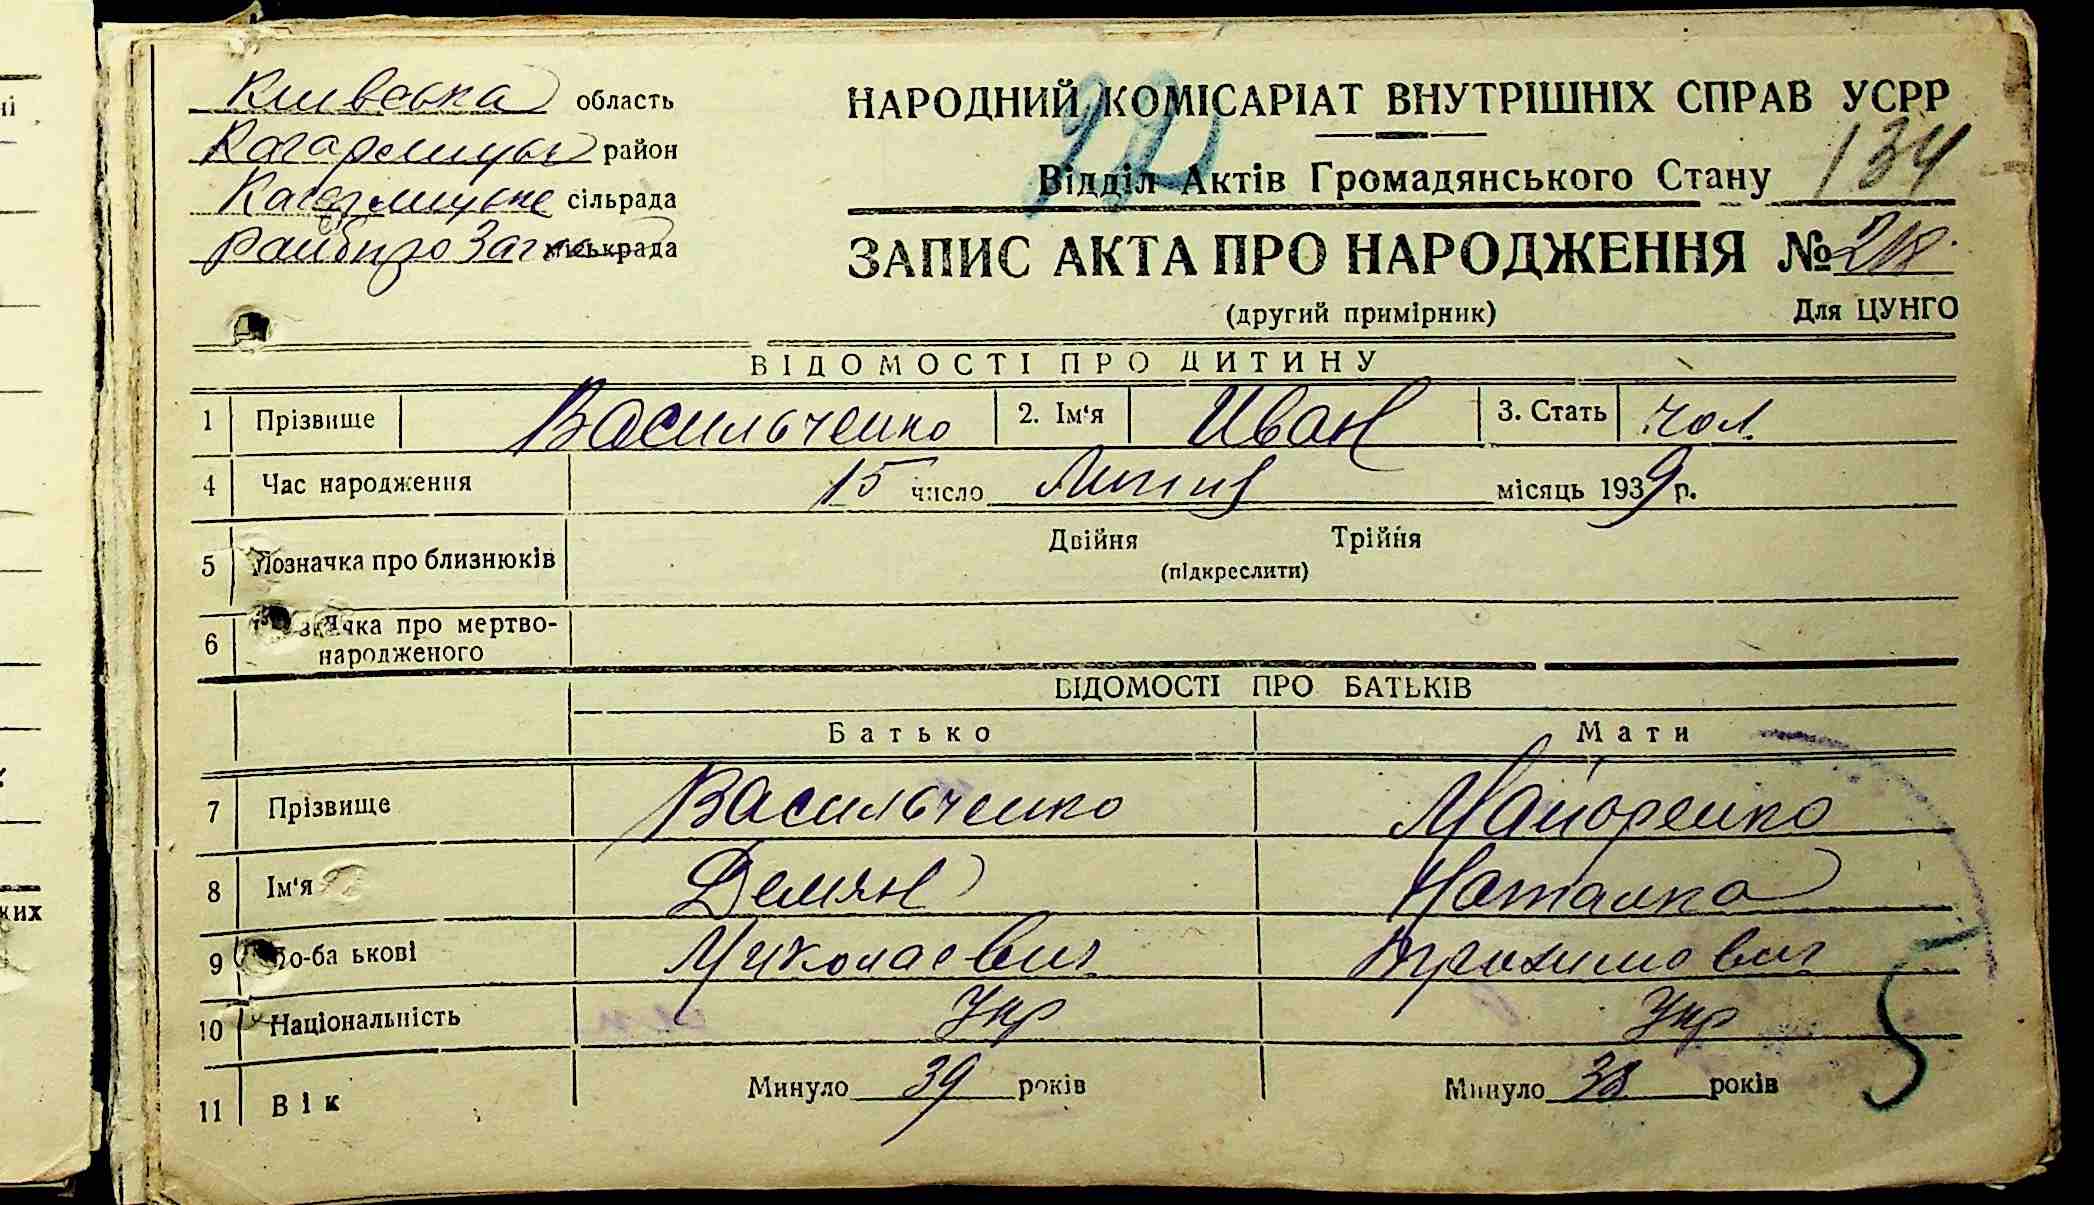 Київська область
НАРОДНИЙ КОМІСАРІАТ ВНУТРІШНІХ СПРАВ УСРР
Кагарлицьк район
Відділ Актів Громадянського Стану 134
Кагарлицьке сільрада
Райбюро Загс міськрада
ЗАПИС АКТА ПРО НАРОДЖЕННЯ № 218
(другий примірник) Для ЦУНГО
ВІДОМОСТІ ПРО ДИТИНУ
1 Прізвище Васильченко 2. Ім'я Иван 3. Стать чол.
4 Час народження 15 число Липня місяць 1939 р.
5 Позначка про близнюків Двійня Трійня
(підкреслити)
6 Позначка про мертво-
народженого
ВІДОМОСТІ ПРО БАТЬКІВ
Батько Мати
7 Прізвище Васильченко Майоренко
8 Ім'я Демян Наталка
9 По-ба ькові Миколаевич
10 Національність Укр Укр
11 Вік Минуло 39 років Минуло 38 років
5
ких